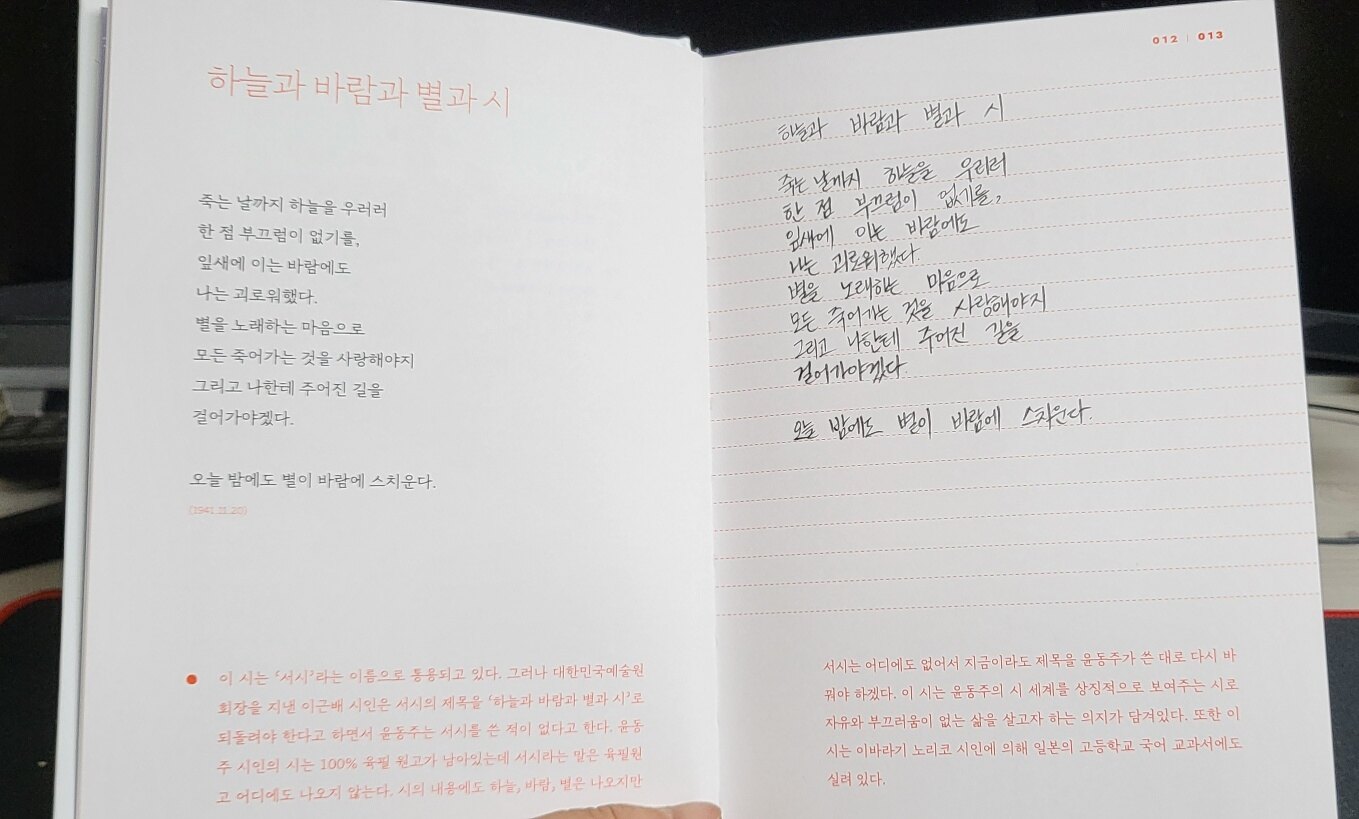 하늘과 바람과 별과 시
죽는 날까지 하늘을 우러러
한 점 부끄럼이 없기를,
잎새에 이는 바람에도
나는 괴로워했다.
별을 노래하는 마음으로
모든 죽어가는 것을 사랑해야지
그리고 나한테 주어진 길을
걸어가야겠다.
오늘 밤에도 별이 바람에 스치운다.
(1941.11.20)
이 시는 ‘서시’라는 이름으로 통용되고 있다. 그러나 대한민국예술원
회장을 지낸 이근배 시인은 서시의 제목을 ‘하늘과 바람과 별과 시’로
되돌려야 한다고 하면서 윤동주는 서시를 쓴 적이 없다고 한다. 윤동
주 시인의 시는 100% 육필 원고가 남아있는데 서시라는 말은 육필원
고 어디에도 나오지 않는다. 시의 내용에도 하늘, 바람, 별은 나오지만
012 | 013
하늘과 바람과 별과 시
죽는 날까지 하늘을 우러러
한 점 부끄럼이 없기를,
잎새에 이는 바람에도
나는 괴로워했다.
별을 노래하는 마음으로
모든 죽어가는 것을 사랑해야지
그리고 나한테 주어진 길을
걸어가야겠다
오늘 밤에도 별이 바람에 스치운다.
서시는 어디에도 없어서 지금이라도 제목을 윤동주가 쓴 대로 다시 바
꿔야 하겠다. 이 시는 윤동주의 시 세계를 상징적으로 보여주는 시로
자유와 부끄러움이 없는 삶을 살고자 하는 의지가 담겨있다. 또한 이
시는 이바라기 노리코 시인에 의해 일본의 고등학교 국어 교과서에도
실려 있다.